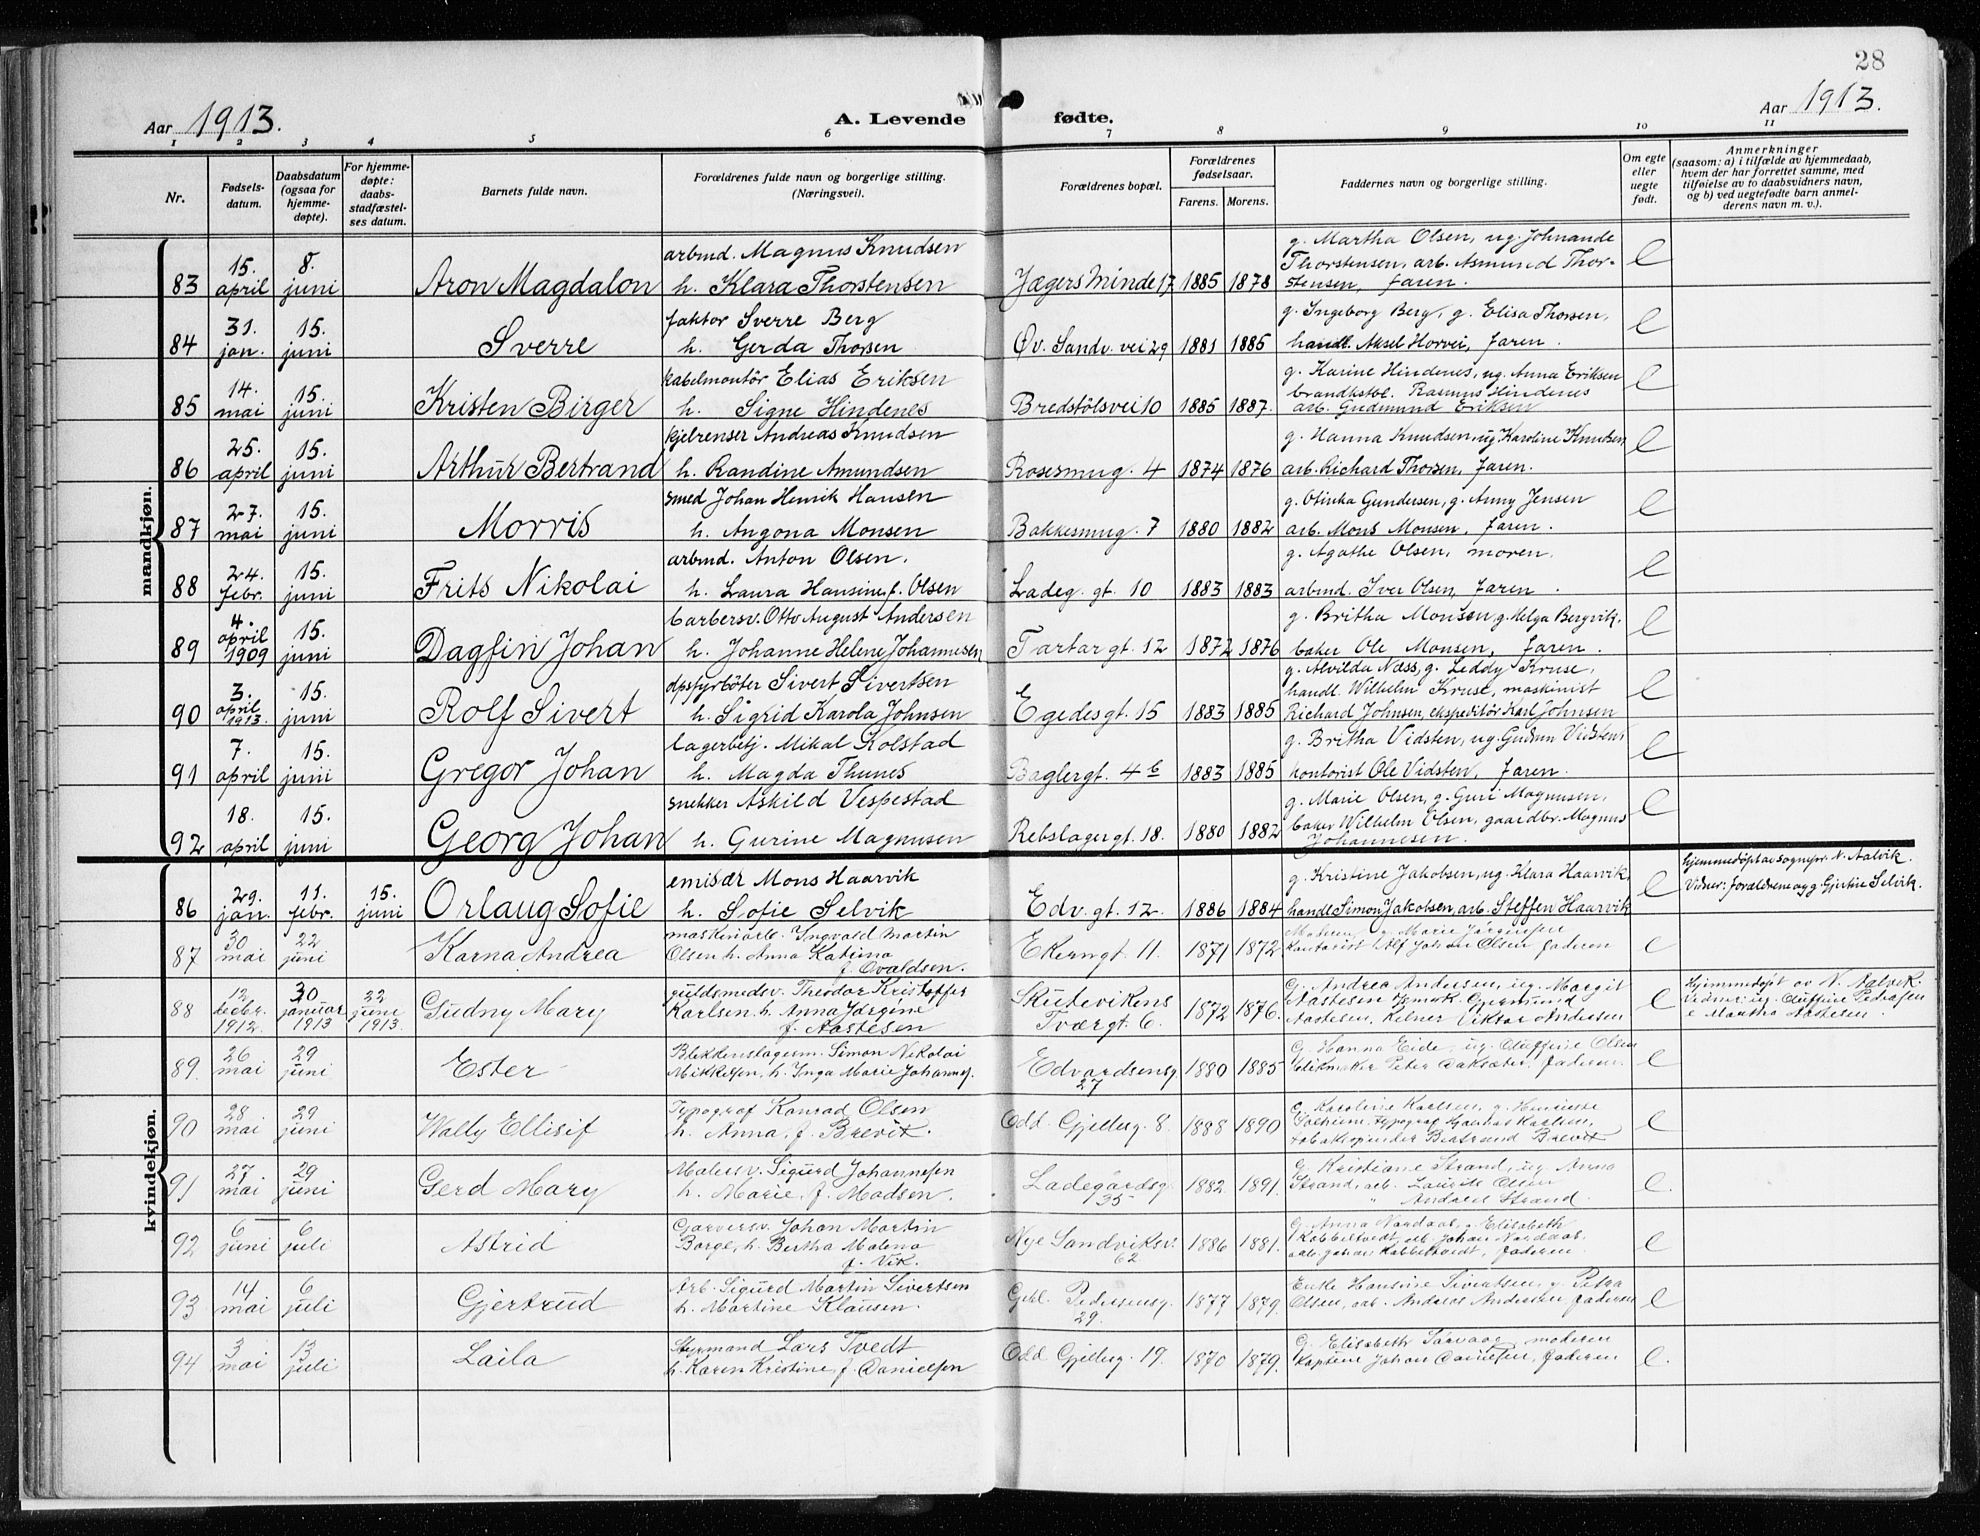 28
Aar 1913.
A. Levende fødte.
Aar 1913.
1 2 3 4 5 6 7 8 9 10 11
Nr.
Fødsels-
datum.
Daabsdatum
(ogsaa for
hjemme-
døpte).
For hjemme-
døpte:
daabs-
stadfæstel-
ses datum.
Barnets fulde navn.
Forældrenes fulde navn og borgerlige stilling.
(Næringsvei).
Forældrenes bopæl.
Forældrenes
fødselsaar.
Farens. Morens.
Faddernes navn og borgerlige stilling.
Om egte
eller
uegte
født.
Anmerkninger
(saasom: a) i tilfælde av hjemmedaab,
hvem der har forrettet samme, med
tilføielse av to daabsvidners navn,
og b) ved uegtefødte barn anmel-
derens navn m. v.).
mandkjøn.
83 15. april 8. juni Aron Magdalon
arbmd. Magnus Knudsen
h. Klara Thorstensen
Jægers Minde 17 1885 1878
g. Martha Olsen, ug. Johnande
Thorstensen, arb. Asmund Thor-
stensen, faren. e
84 31. jan. 15. juni Sverre
faktor Sverre Berg
h. Gerda Thorsen
Øv. Sandv. vei 29 1881 1885
g. Ingeborg Berg, g. Elisa Thorsen,
handl. Aksel Horvei, faren. e
85 14. mai 15. juni Kristen Birger
kabelmontör Elias Eriksen
h. Signe Hindenes
Bredstölsvei 10 1885 1887.
g. Karine Hindenes, ug. Anna Eriksen
brandkstbl. Rasmus Hindenes
arb. Gudmund Eriksen e
86 25. april 15. juni Arthur Bertrand
kjelrenser Andreas Knudsen
h. Randine Amundsen
Rosesmug. 4 1874 1876
g. Hanna Knudsen, ug. Karoline Knudsen
arb. Richard Thorsen, faren. e
87 27. mai 15. juni Morris
smed Johan Henrik Hansen
h. Angona Monsen
Bakkesmug. 7 1880 1882
g. Otinka Gundersen, g. Anny Jensen
arb. Mons Monsen, faren. e
88 24. febr. 15. juni Frits Nikolai
arbmd. Anton Olsen.
h. Laura Hansine, f. Olsen
Ladeg. gt. 10 1883 1883
g. Agathe Olsen, moren.
arbmd. Iver Olsen, faren. e
89 4. april 1909 15. juni Dagfin Johan
barbersv. Otto August Andersen
h. Johanne Helene Johannesen
Tartargt. 12 1872 1876
g. Britha Monsen, g. Helga Bergvik.
baker Ole Monsen, faren. e
90 3. april 1913. 15. juni Rolf Sivert
dpsfyrböter Sivert Sivertsen
h. Sigrid Karola Johnsen
Egedesgt. 15 1883 1885
g. Alvilda Næss, g. Leddy Kruse,
handl. Wilhelm Kruse, maskinist
Richard Johnsen, ekspeditör Karl Johnsen e
91 7. april 15. juni Gregor Johan
lagerbetj. Mikal Kolstad
h. Magda Thunes
Baglergt. 4b 1883 1885
g. Britha Vidsten, ug. Gudrun Vidsten,
kontorist Ole Vidsten, faren. e
92 18. april 15. juni Georg Johan
snekker Askild Vespestad
h. Gurine Magnusen
Rebslagergt. 18. 1880 1882
g. Marie Olsen, g. Guri Magnusen,
baker Wilhelm Olsen, gaardbr. Magnus
Johannesen. e
kvindekjøn.
86 29. jan. 11. febr. 15. juni Orlaug Sofie
emisær Mons Haarvik
h. Sofie Selvik
Edv. gt. 12. 1886 1884
g. Kristine Jakobsen, ug. Klara Haarvik,
handl. Simon Jakobsen, arb. Steffen Haarvik e
hjemmedöpt av sognepr. N. Aalvik.
Vidner: forældrene og g. Gjertine Selvik.
87 30 mai 22 juni Karna Andrea
maskinarb. Ingvald Martin
Olsen h. Anna Katrina
f. Ovaldsen.
Ekerngt. 11. 1871 1872
Moderen, g. Marie Jörginsen
Kontorist Alf Johan Olsen faderen e
88 12 decbr. 1912. 30 januar 1913 22 juni 1913. Gudny Mary
guldsmedsv. Theodor Kristoffer
Karlsen h. Anna Jörgine
f. Aastesen
Skutevikens
Tværgt. 6. 1872 1876.
G. Andrea Andersen, ug. Margit
Aastesen Gjermund
Aastesen, Kelner Viktor Andersen e
Hjemmedøpt av N. Aalvik.
ug. Oluffine Petersen
e Martha Aastesen.
89. 26 mai 29 juni Ester
Blikkenslagerm. Simon Nikolai
Mikkelsen, h. Inga Marie Johannes.
Edvardsensg.
27 1880 1885
G. Hanna Eide, ug. Oluffine Olsen
Seilmaker Peter Daksæter. faderen. e
90 28 mai 29 juni Wally Ellisif
Typograf Konrad Olsen
h. Anna, f. Brevik.
Odd Gjelleg. 8. 1888 1890
G. Karoline Karlsen, g. Henriette
Solheim. Typograf Karlsen,
tobakspinder Bertrand Brevik e
91 27 mai 29 juni Gerd Mary
Malersv. Sigurd Johannesen
h. Marie, f. Madsen.
Ladegårdsg.
35 1882. 1891.
G. Kristiane Strand, ug. Anna
Strand, arb. Laurits Olsen
" Andreas Strand. e
92 6 juni 6 juli Astrid
Garversv. Johan Martin
Borge, h. Bertha Malena
f. Vik.
Nye Sandviksv.
62 1886 1881.
G. Anna Nordaas, g. Elisabeth
Kobbeltvedt, arb. Johan Nordaas,
arb. Johan Kobbeltvedt, faderen e
93 14 mai 6 juli Gjertrud
Arb. Sigurd Martin Sivertsen
h. Martine Klausen.
Gbl. Pedersensg.
29. 1877 1879.
Enke Hansine Sivertsen, g. Petra
Olsen, arb. Andreas Andersen faderen e
94 3 mai 13 juli Laila
Styrmand Lars Tvedt
h. Karen Kristine, f. Danielsen
Odd Gjelleg. 19. 1870 1879.
G. Elisabeth Sörvaag, moderen
Kaptein Johan Danielsen, faderen. e.